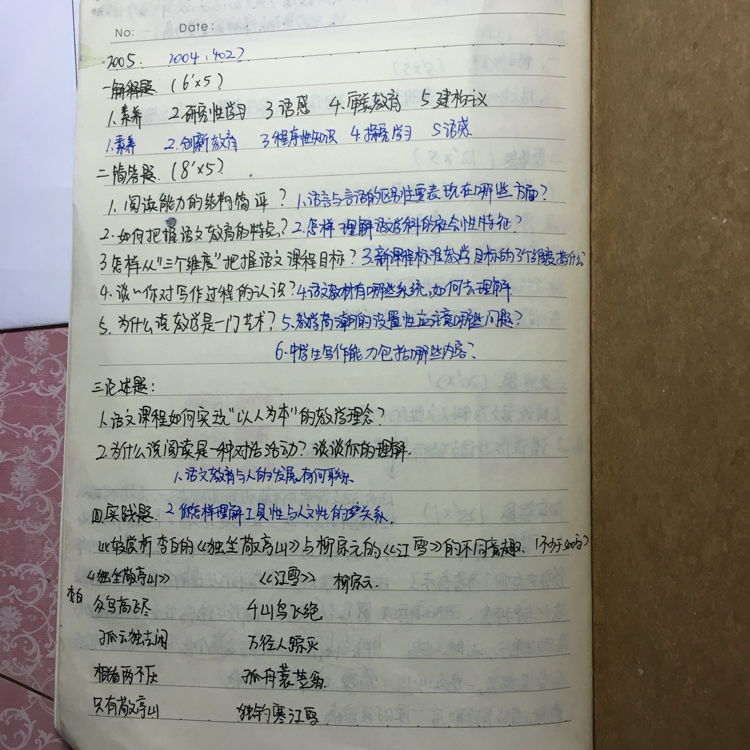 No: Date:
2005. 2004(402)
一解释题 (6'×5)
1.素养 2.研究性学习 3语感 4.审美教育 5建构主义
1.素养 2.创新教育 3程序性知识 4探究学习 5语感
二简答题. (8'×5)
1.阅读能力的结构简评? 1.语言与言语的区别性重要表现在哪些方面?
2.如何把握语文教育的特点? 2.怎样理解语文学科的社会性特征?
3怎样从"三个维度"把握语文课程目标? 3.新课程标准教学目标的3个维度指什么
4.谈谈你对写作过程的认识? 4语文教材有哪些系统,如何去理解
5.为什么说教学是一门艺术? 5.教学高潮的设置性应注意哪些问题?
6.中学生写作能力包括哪些内容?
三论述题:
1.语文课程如何实现"以人为本"的教学理念?
2.为什么说阅读是一种对话活动?谈谈你的理解.
1.语文教育与人的发展有何联系
四.实践题. 2.你怎样理解工具性与人文性的关系.
比较赏析李白的《独坐敬亭山》与柳宗元的《江雪》的不同意趣. (不少于400字)
《独坐敬亭山》 《江雪》 柳宗元.
李白 众鸟高飞尽 千山鸟飞绝
孤云独去闲 万径人踪灭
相看两不厌 孤舟蓑笠翁.
只有敬亭山 独钓寒江雪